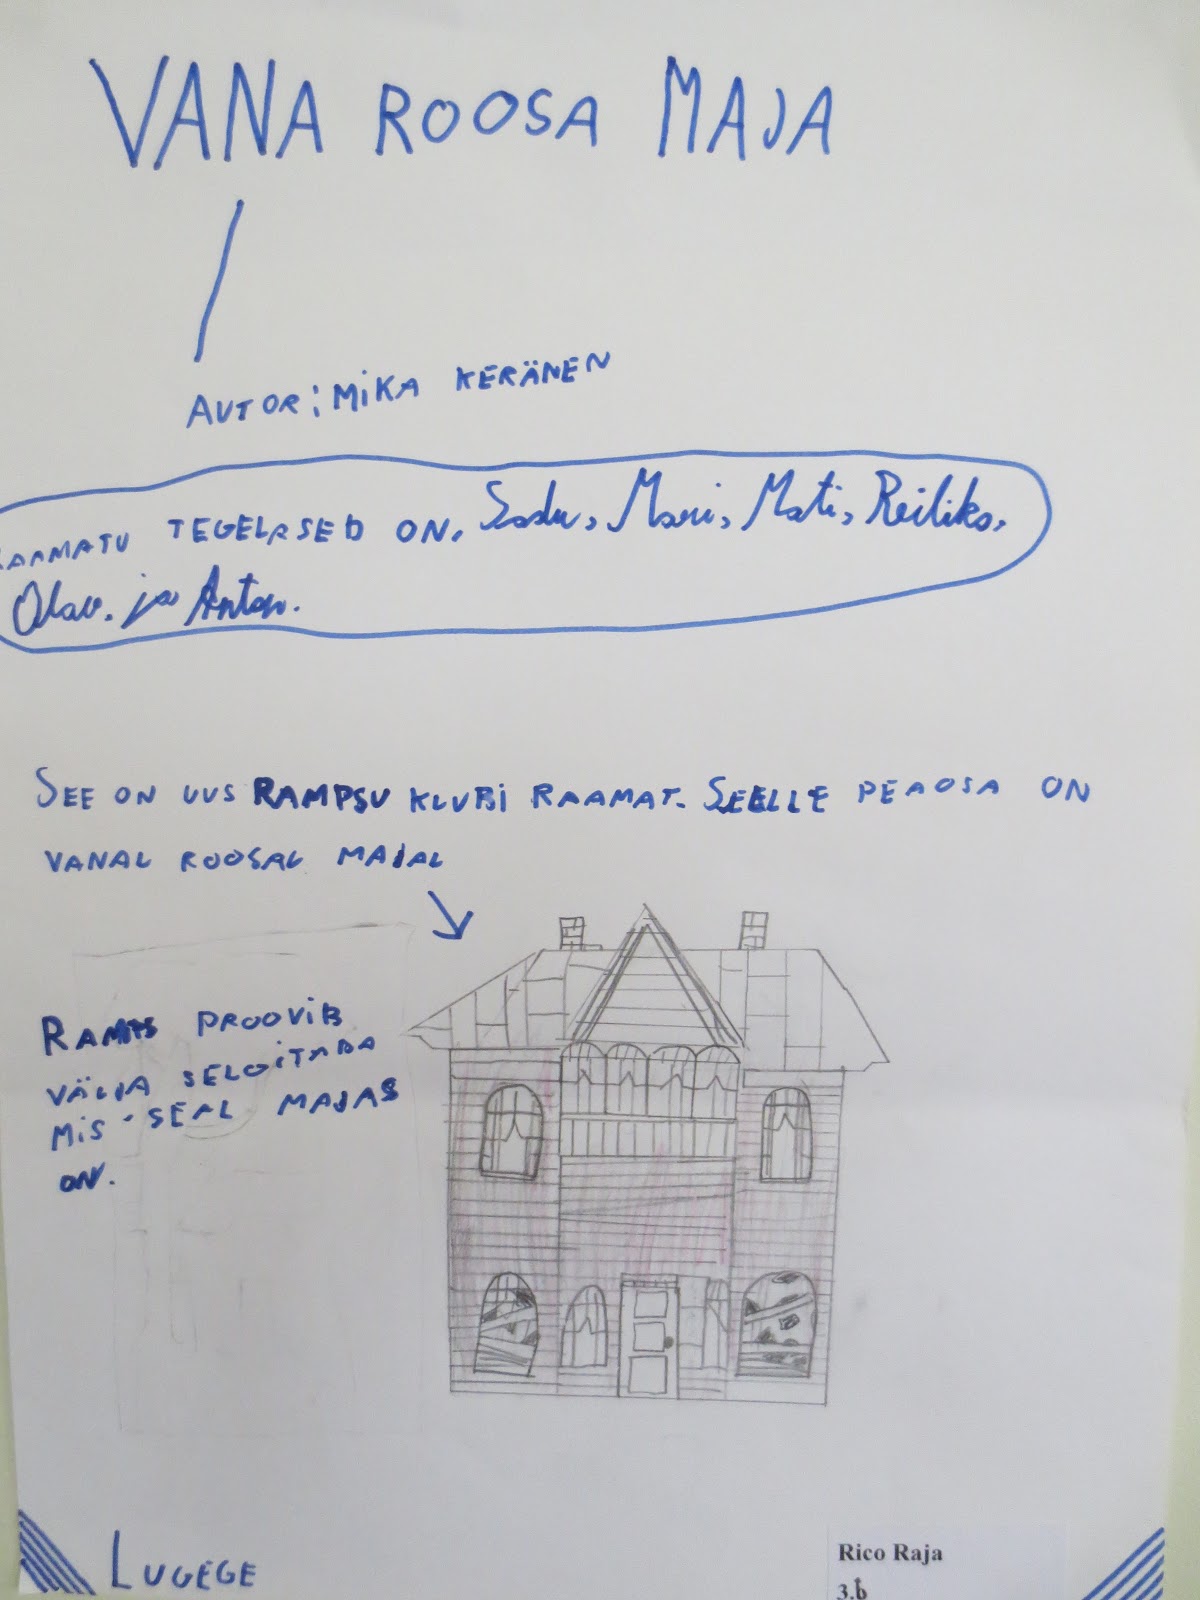 VANA ROOSA MAJA
AUTOR: MIKA KERÄNEN
RAAMATU TEGELASED ON, Sadu, Mari, Mati, Reilika,
Olav, ja Anton.
SEE ON UUS RAMPSU KLUBI RAAMAT. SEELLE PEAOSA ON
VANAL ROOSAL MAJAL
RAMPS PROOVIB
VÄLJA SELGITADA
MIS SEAL MAJAS
ON.
LUGEGE
Rico Raja
3.b